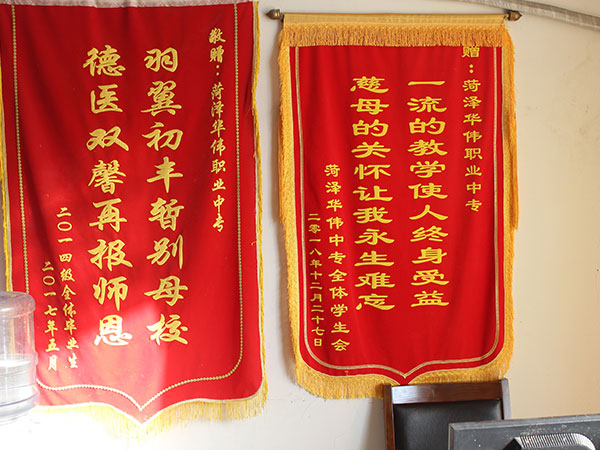 敬赠：菏泽华伟职业中专
羽翼初丰暂别母校
德医双馨再报师恩
二〇一四级全体毕业生
二〇一七年五月
赠：菏泽华伟职业中专
一流的教学使人终身受益
慈母的关怀让我永生难忘
菏泽华伟中专全体学生会
二零一八年十二月二十七日